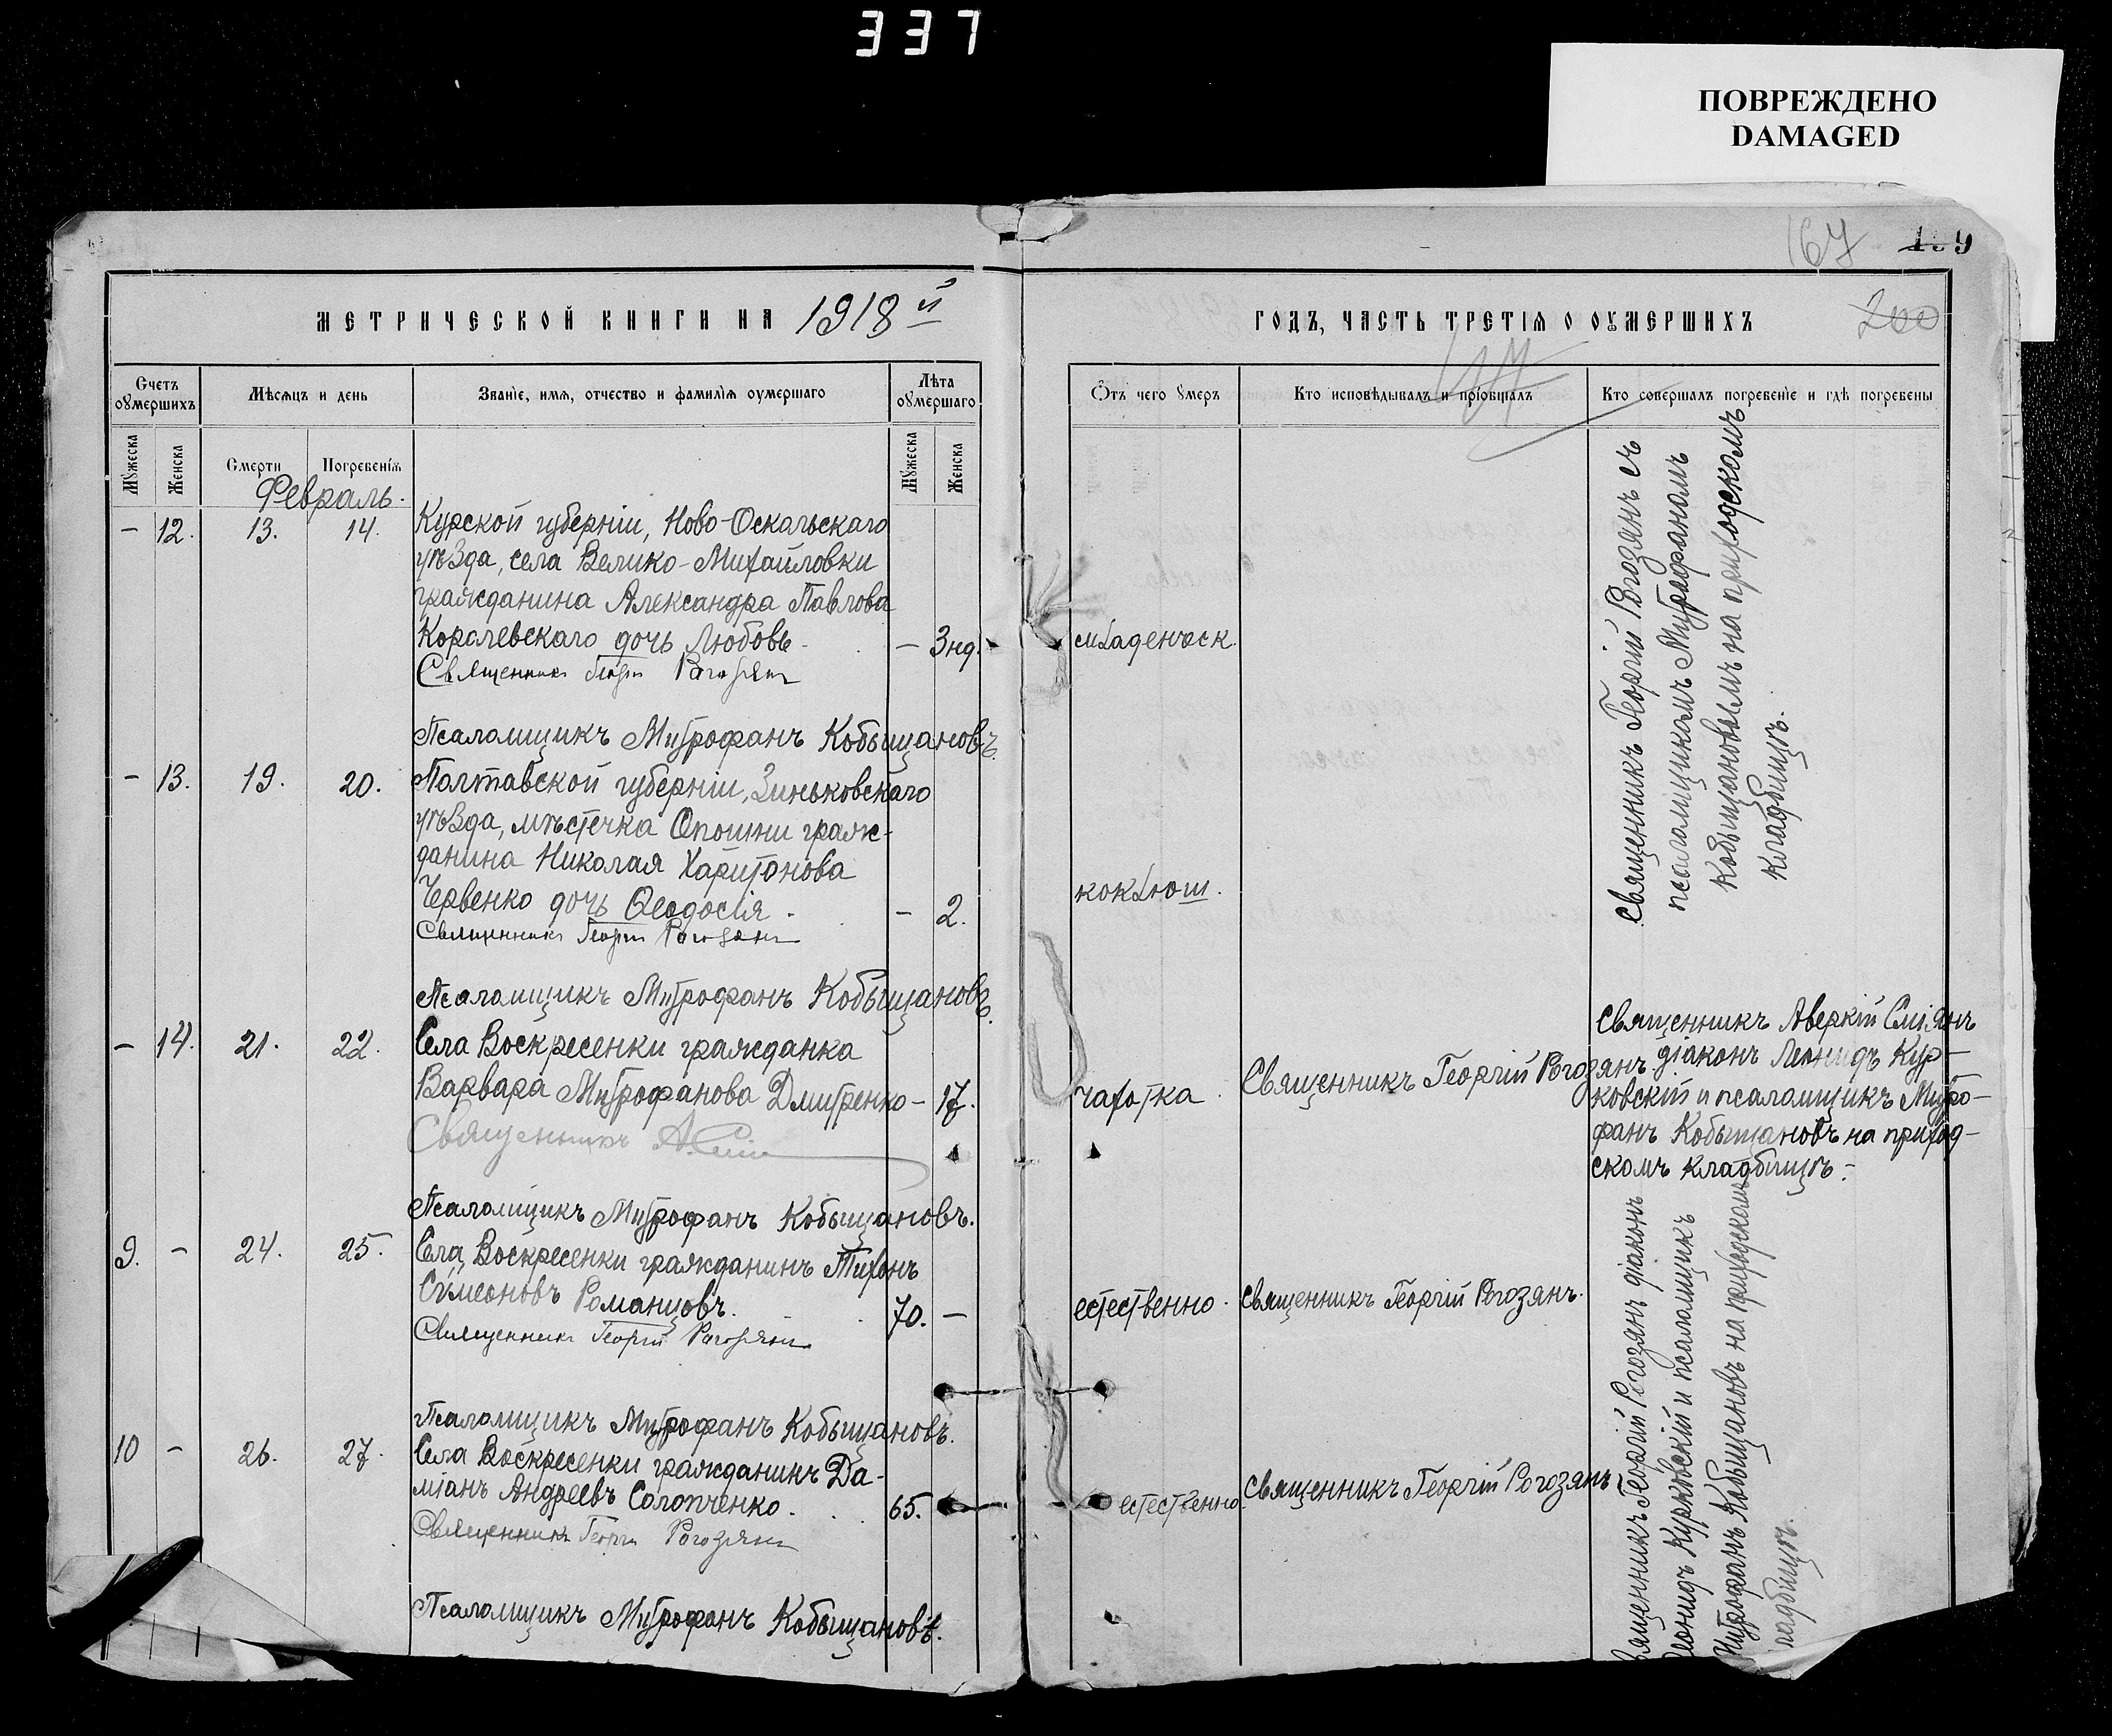 337
ПОВРЕЖДЕНО
DAMAGED
167
200
МЕТРИЧЕСКОЙ КНИГИ НА 1918 й
ГОДЪ, ЧАСТЬ ТРЕТІЯ О ОУМЕРШИХЪ
Счетъ оумершихъ
Мѣсяцъ и день
Званіе, имя, отчество и фамилія оумершаго
Лѣта оумершаго
Отъ чего умеръ
Кто исповѣдывалъ и пріобщалъ
Кто совершалъ погребеніе и гдѣ погребены
Мужеска
Женска
Смерти
Погребенія
Мужеска
Женска
Февраль.
– 12. 13. 14. Курской губерніи, Ново-Оскольскаго
уѣзда, села Велико-Михайловки
гражданина Александра Павлова
Королевскаго дочь Любовь – 3 нд. младенческ.
Священникъ Георгій Рогозянъ
Псаломщикъ Митрофанъ Кобыщановъ.
– 13. 19. 20. Полтавской губерніи, Зиньковскаго
уѣзда, мѣстечка Опошни граж-
данина Николая Харитонова
Червенко дочь Ѳеодосія. – 2. коклюш.
Священникъ Георгій Рогозянъ
Псаломщикъ Митрофанъ Кобыщановъ.
Священникъ Георгій Рогозянъ съ
псаломщикомъ Митрофаномъ
Кобыщановымъ на приходскомъ
кладбищѣ.
– 14. 21. 22. Села Воскресенки гражданка
Варвара Митрофанова Дмитренко – 17. чахотка. Священникъ Георгій Рогозянъ.
Священникъ А.
Псаломщикъ Митрофанъ Кобыщановъ.
Священникъ Аверкій Сміянъ
діаконъ Леонидъ Кур-
ковскій и псаломщикъ Митро-
фанъ Кобыщановъ на приход-
скомъ кладбищѣ.
9. – 24. 25. Села Воскресенки гражданинъ Тихонъ
Сѵмеоновъ Романцовъ. 70. – естественно. Священникъ Георгій Рогозянъ.
Священникъ Георгій Рогозянъ
Псаломщикъ Митрофанъ Кобыщановъ.
10 – 26. 27. Села Воскресенки гражданинъ Да-
міанъ Андреевъ Солопченко. 65. естественно Священникъ Георгій Рогозянъ
Священникъ Георгій Рогозянъ
Псаломщикъ Митрофанъ Кобыщановъ.
вященникъ Георгій Рогозянъ діаконъ
Леонидъ Курковскій и псаломщикъ
Митрофанъ Кобыщановъ на приходскомъ
ладбищѣ.